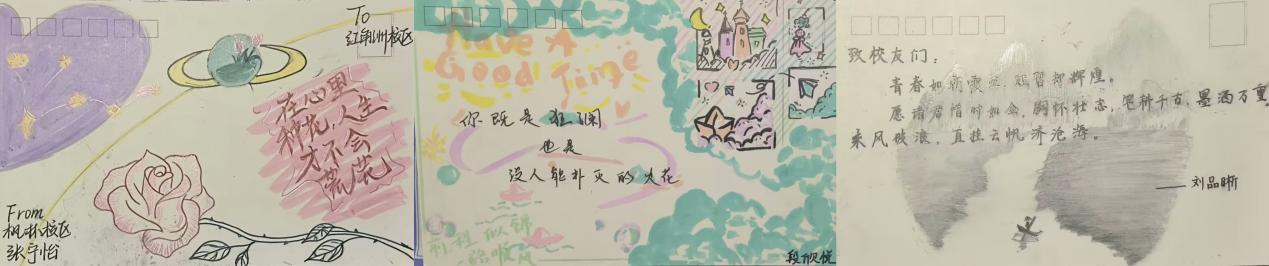 To
红角洲校区
在心里
种花，人生
才不会
荒芜
From
枫林校区
张宇怡
Have A
Good Time
你既是狂澜
也是
没人能扑灭的火花
前程似锦
一路顺风
段欣悦
致校友们：
青春如朝露，短暂却辉煌。
愿诸君惜时如金，胸怀壮志，笔耕千古，墨洒万里，
乘风破浪，直挂云帆济沧海。
——刘品晰